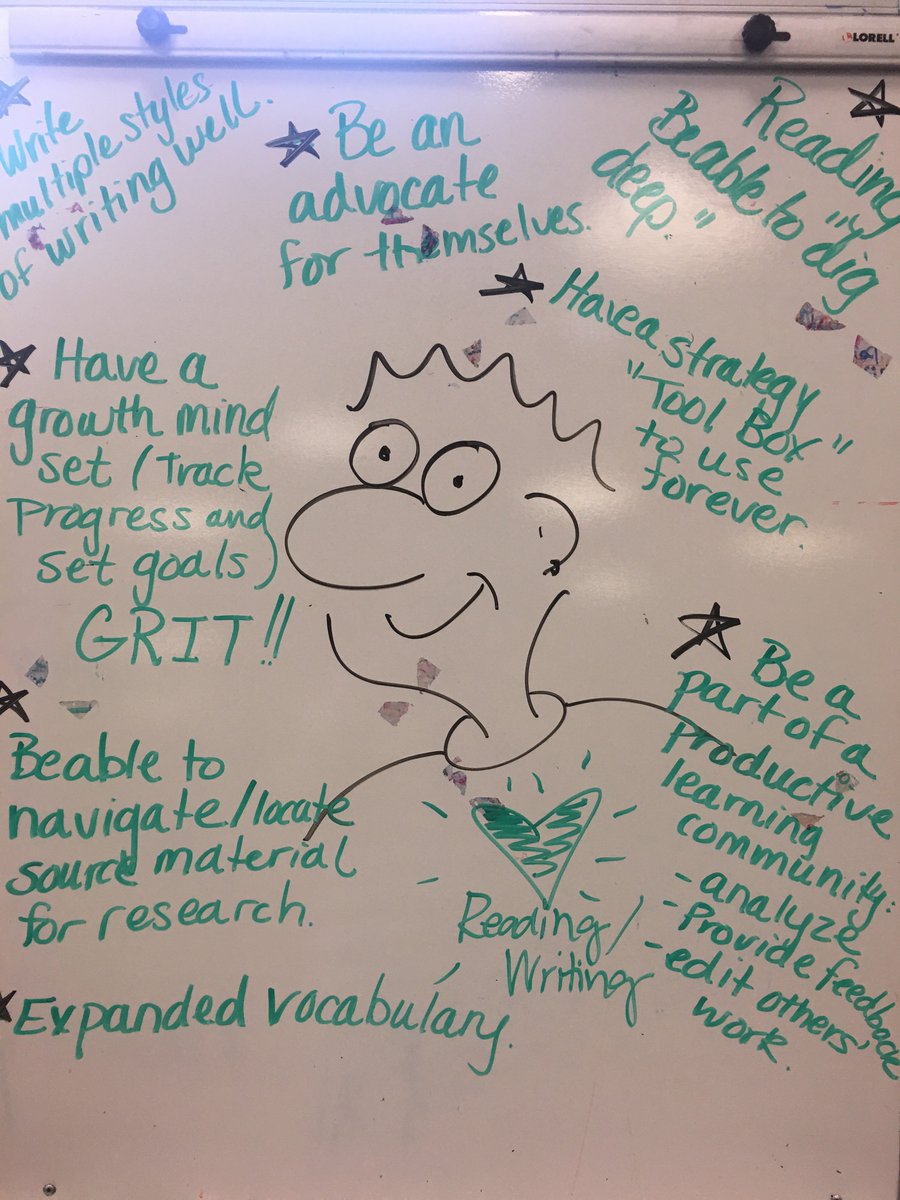 LORELL
Write
multiple styles
of writing well.
Be an
advocate
for themselves.
Reading
Beable to "dig
deep."
Have a strategy
"Tool Box"
to use
forever.
Have a
growth mind
set (Track
Progress and
set goals)
GRIT!!
Beable to
navigate/locate
source material
for research.
Expanded vocabulary.
Reading/
Writing
Be a
part of a
productive
learning
community:
- analyze
- Provide feedback
- edit others'
work.